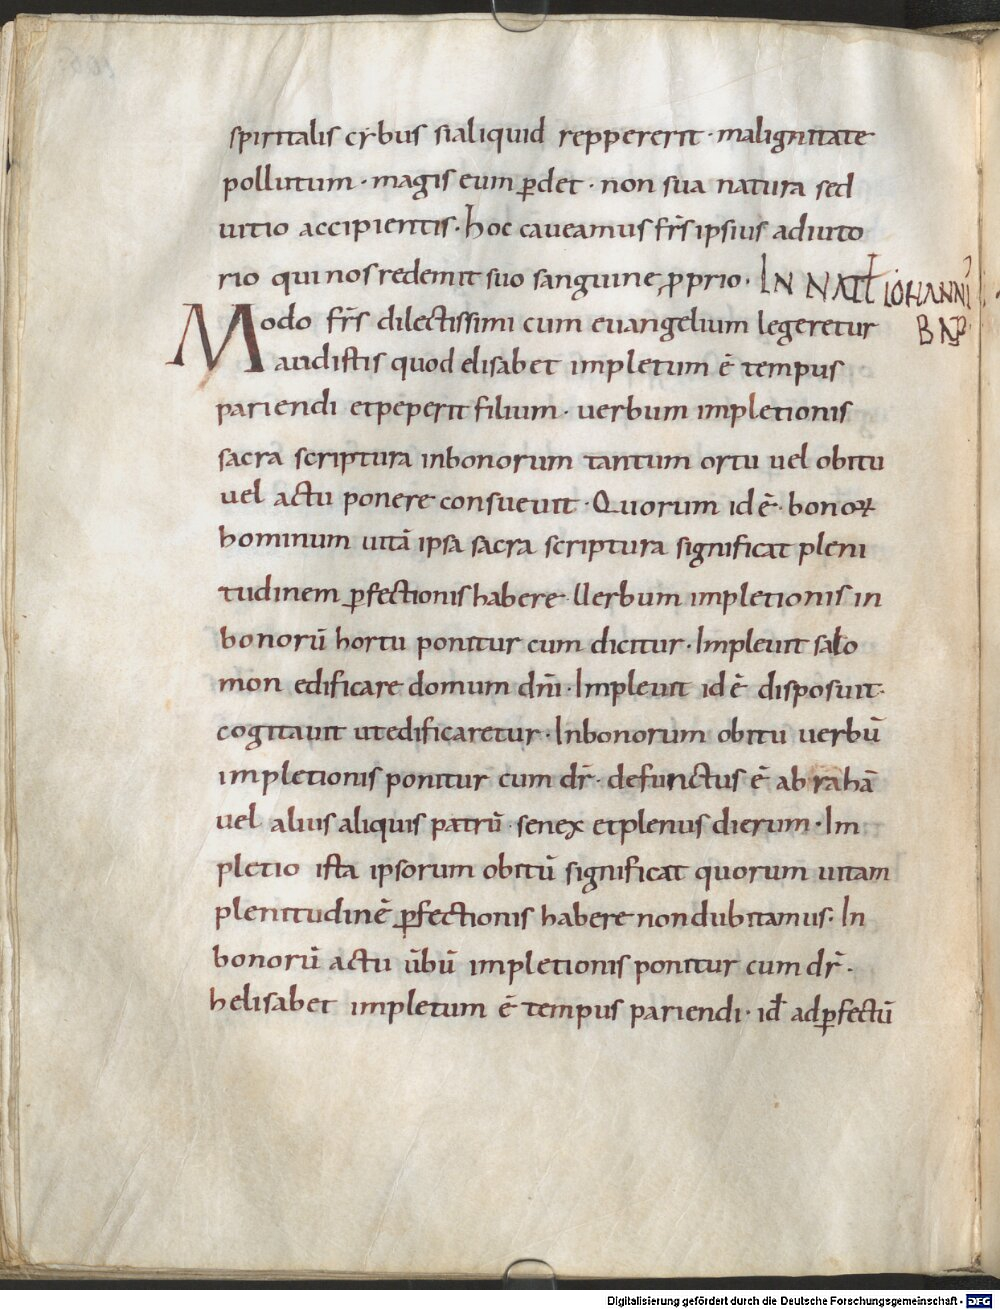 spiritalis cybus sialiquid reppererit · malignitate
pollutum · magis eum ꝑdet · non sua natura sed
uitio accipientis · hoc caueamus fr̄s ipsius adiuto
rio qui nos redemit suo sanguine ꝓprio · IN NAT̄ IOHANNĪ
BAP̄
Modo fr̄s dilectissimi cum euangelium legeretur
audistis quod elisabet impletum ē tempus
pariendi etpeperit filium · uerbum impletionis
sacra scriptura inbonorum tantum ortu uel obitu
uel actu ponere consueuit · Quorum id ē · bonoꝝ
hominum uitā ipsa sacra scriptura significat pleni
tudinem ꝑfectionis habere · Uerbum impletionis in
bonorū hortu ponitur cum dicitur · Impleuit salo
mon edificare domum dn̄i · Impleuit id ē disposuit ·
cogitauit utedificaretur · Inbonorum obitu uerbū
impletionis ponitur cum dr̄ · defunctus ē abrahā
uel alius aliquis patrū · senex etplenus dierum · Im
pletio ista ipsorum obitū significat quorum uitam
plenitudinē ꝑfectionis habere nondubitamus · In
bonorū actu ūbū impletionis ponitur cum dr̄ ·
helisabet impletum ē tempus pariendi · id̄ adꝑfectū
Digitalisierung gefördert durch die Deutsche Forschungsgemeinschaft - DFG